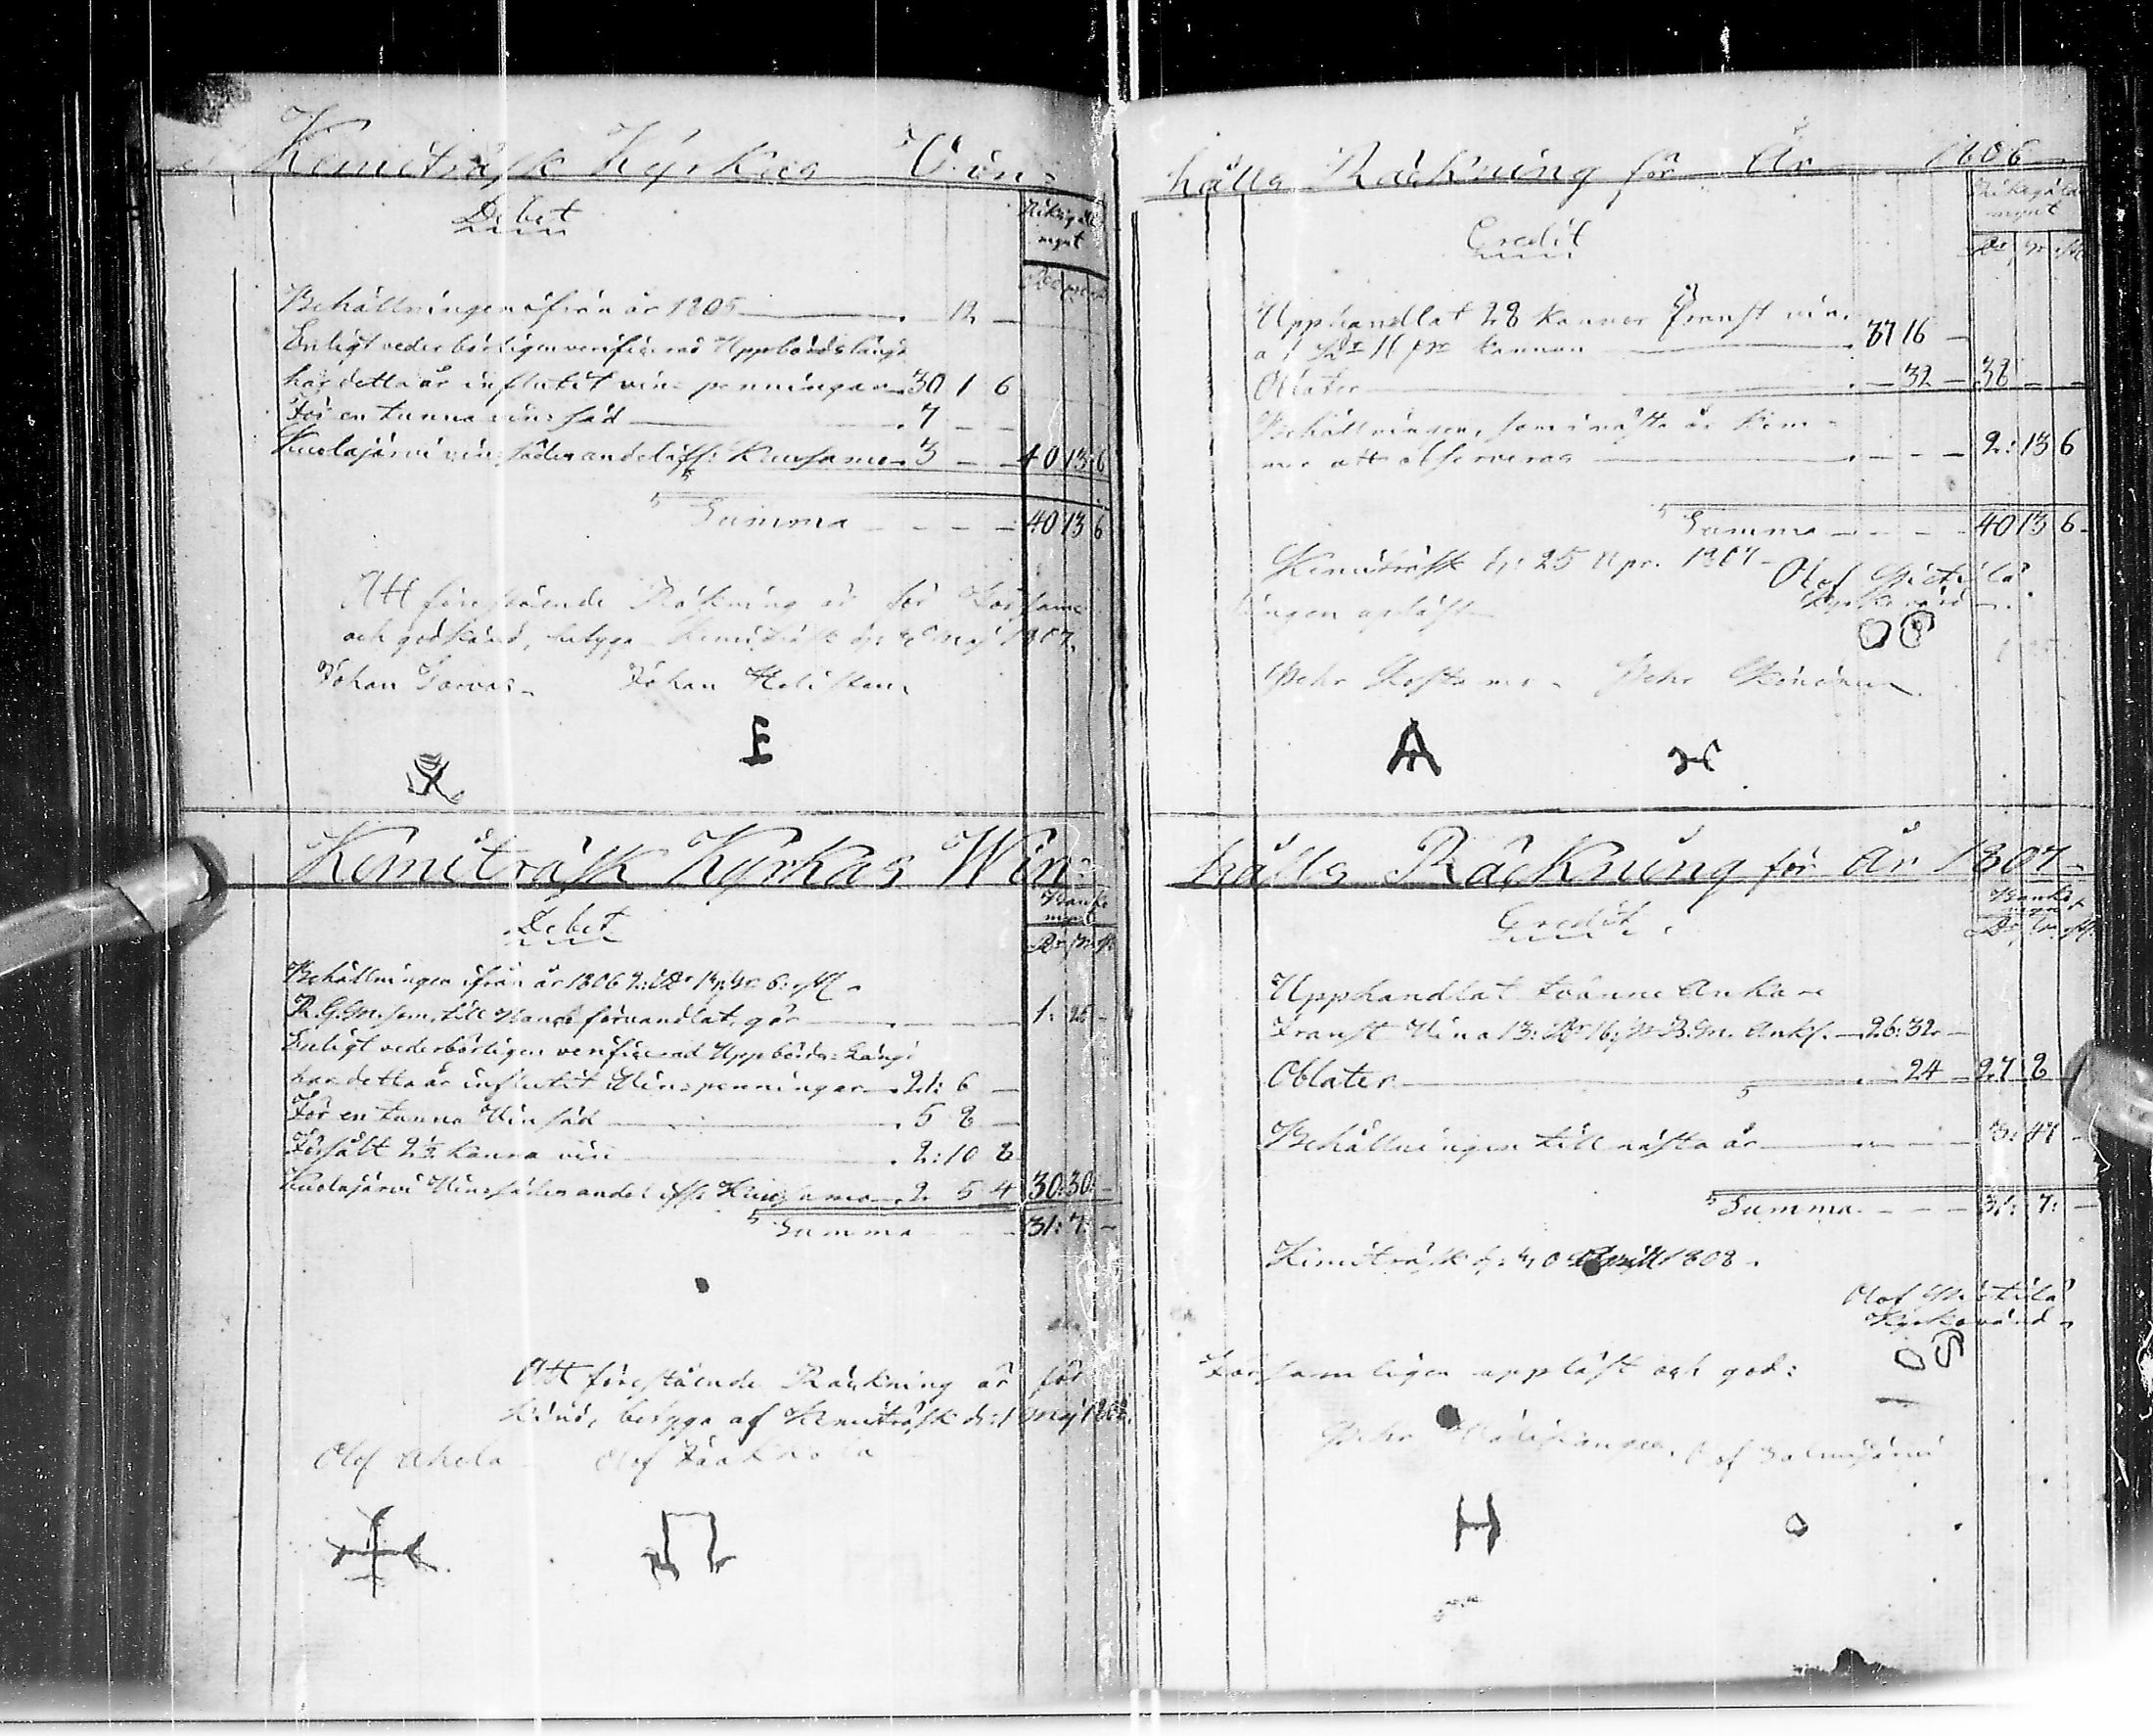 Kemiträsk Kyrkas Vin:
Debet
Riksgäld
mynt
Behållningen ifrån år 1805 12 —
Enligt vederbörligen verificerad Uppbördslängd
har detta år influtit vin-penningar 30 1 6
För en tunna vin: säd 7 — —
Kuolajärvi vin: sädes andel iffr: Kuusamo 3 — — 40 13 6
Summa 40 13 6
Att förestående Räkning är för Församl
och godkänd, betyga Kemiträsk d: Maj 1807.
Johan Johan
hålls Räckning för År 1806
Credit
Riksgälds
mynt
Upphandlat 28 kannor franst vin
a 1 Rdr 16 kannan 37 16 —
Oblater — 32 — 38 — —
Behållningen, som i nästa år kom-
mer att observeras — — — 2: 13 6
Summa 40 13 6
Kemiträsk d: 25 Apr. 1807
Olof
Kyrkovärd
lingen upläst
Pehr Pehr
Kemiträsk Kyrkas Win:
Debet
Banko
mynt
Behållningen ifrån år 1806 2: Rdr 13
R.G.M. som, till Banco förvandlat, gör 1: 25 —
Enligt vederbörligen verificerad Uppbörds: Längd
har detta år influtit Vin: penningar 21: 6 —
För en tunna Vin säd 5 8 —
Försålt 2½ kanna vin 2: 10 8
Kuolajärvi Vin: sädes andel iffr Kuusamo 2. 5 4 30: 30: —
Summa 31: 7: —
Att förestående Räckning är för
känd, betyga af Kemiträsk d: 1 Maj 1808.
Olof Ahola Olof
hålls Räckning för År 1807
Credit
Banko
mynt
Upphandlat tvänne Ankare
Franst Vin a 13: Rdr 16 B.M. Ank. 26: 32 —
Oblater 24 — 27 8
Behållningen till nästa år 3: 47 —
Summa 31: 7: —
Kemiträsk d: 30 April 1808
Olof
Kyrkovärd
Församlingen uppläst och god:
Pehr Olof Salmijärvi